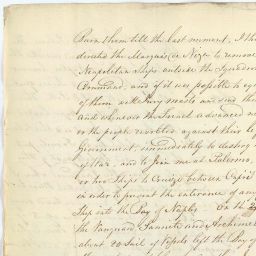 Burn them till the last moment, I th
directed the Marquis de Niza to remove
Neapolitan Ships outside the Squadron
Command, and if it was possible to
of them with Jury masts and send them
and whenever the Israel advanced n
or the people revolted against their l
Government, immediately to destroy
of War, and to join me at Palermo,
or two Ships to Cruize between Capri
in order to prevent the enterance of any
Ship into the Bay of Naples. On the
the Vanguard Sannite and Archimed
about 20 Sail of Vessels left the Bay of